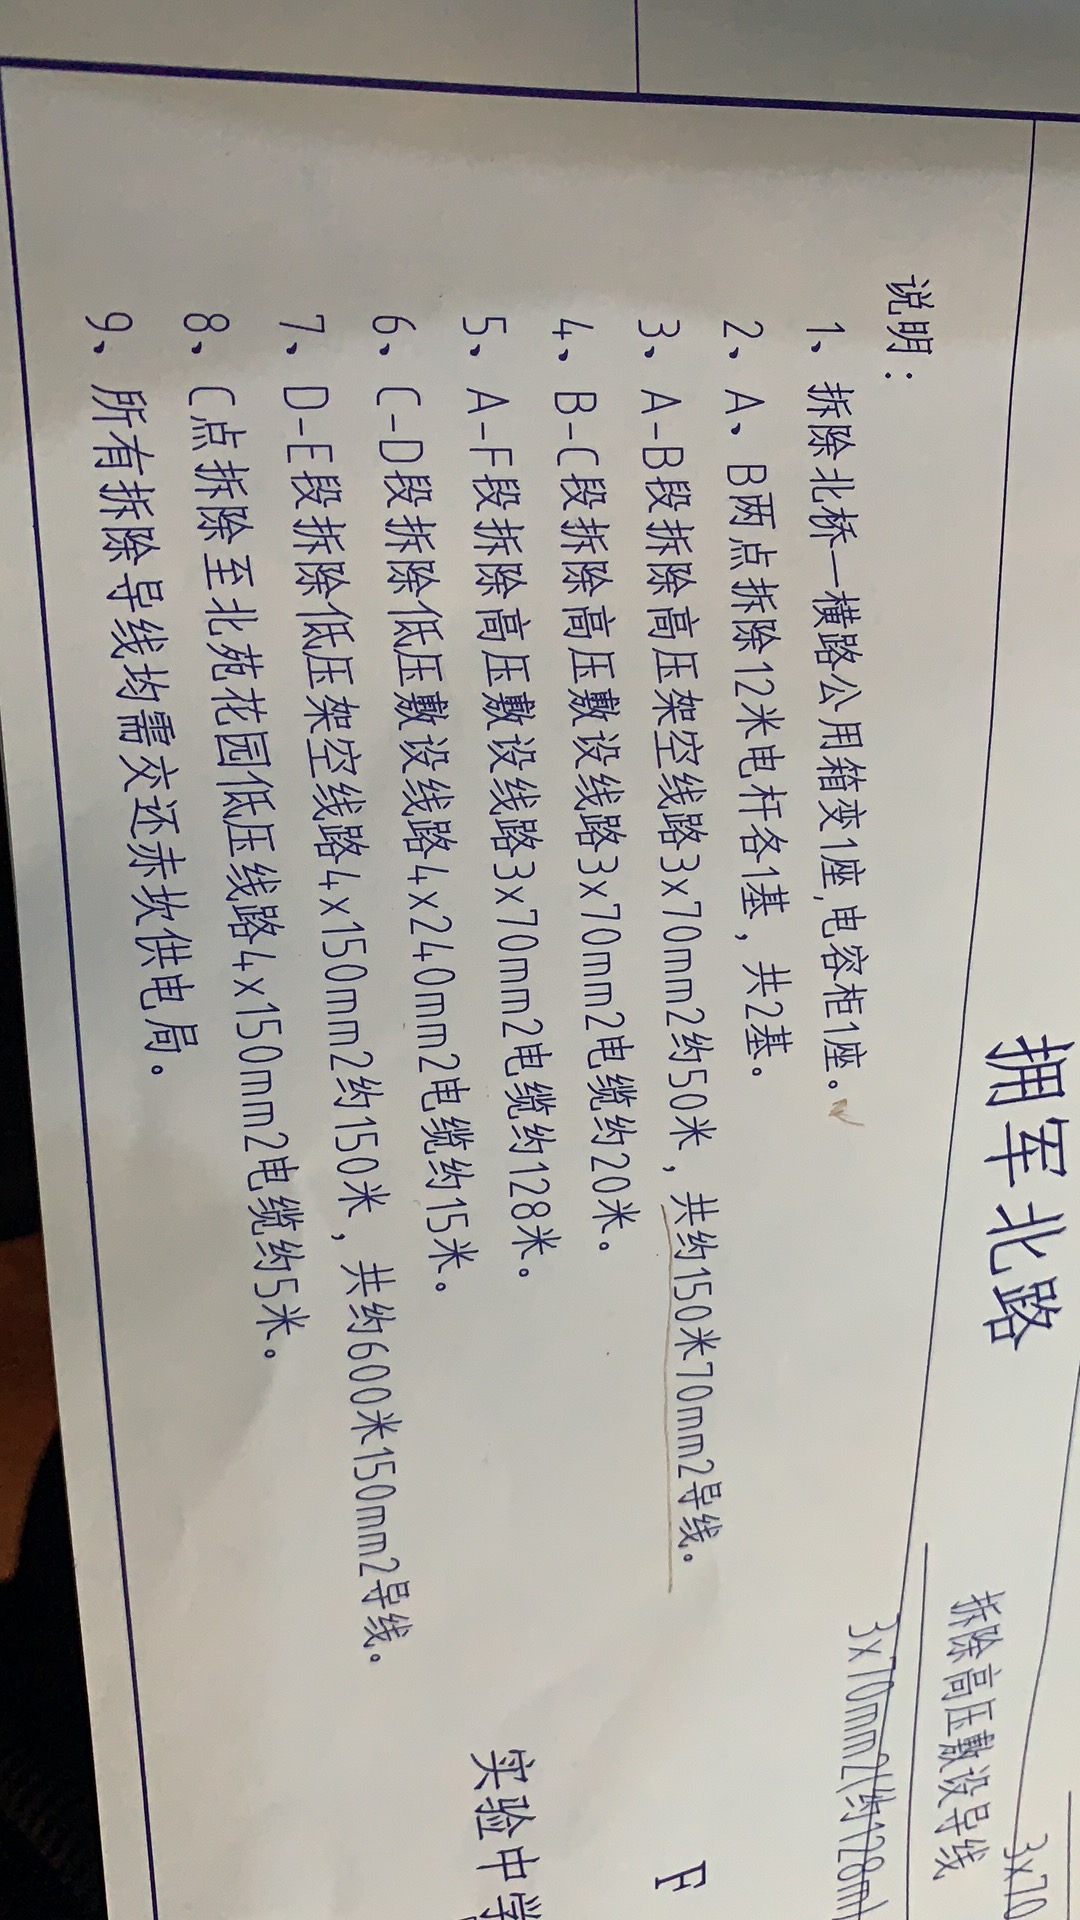 拥军北路
说明：
1、拆除北桥一横路公用箱变1座,电容柜1座。
2、A、B两点拆除12米电杆各1基，共2基。
3、A-B段拆除高压架空线路3x70mm2约50米，共约150米70mm2导线。
4、B-C段拆除高压敷设线路3x70mm2电缆约20米。
5、A-F段拆除高压敷设线路3x70mm2电缆约128米。
6、C-D段拆除低压敷设线路4x240mm2电缆约15米。
7、D-E段拆除低压架空线路4x150mm2约150米，共约600米150mm2导线。
8、C点拆除至北苑花园低压线路4x150mm2电缆约5米。
9、所有拆除导线均需交还赤坎供电局。
拆除高压敷设导线
3x70mm2(约128m)
3x70
F
实验中学